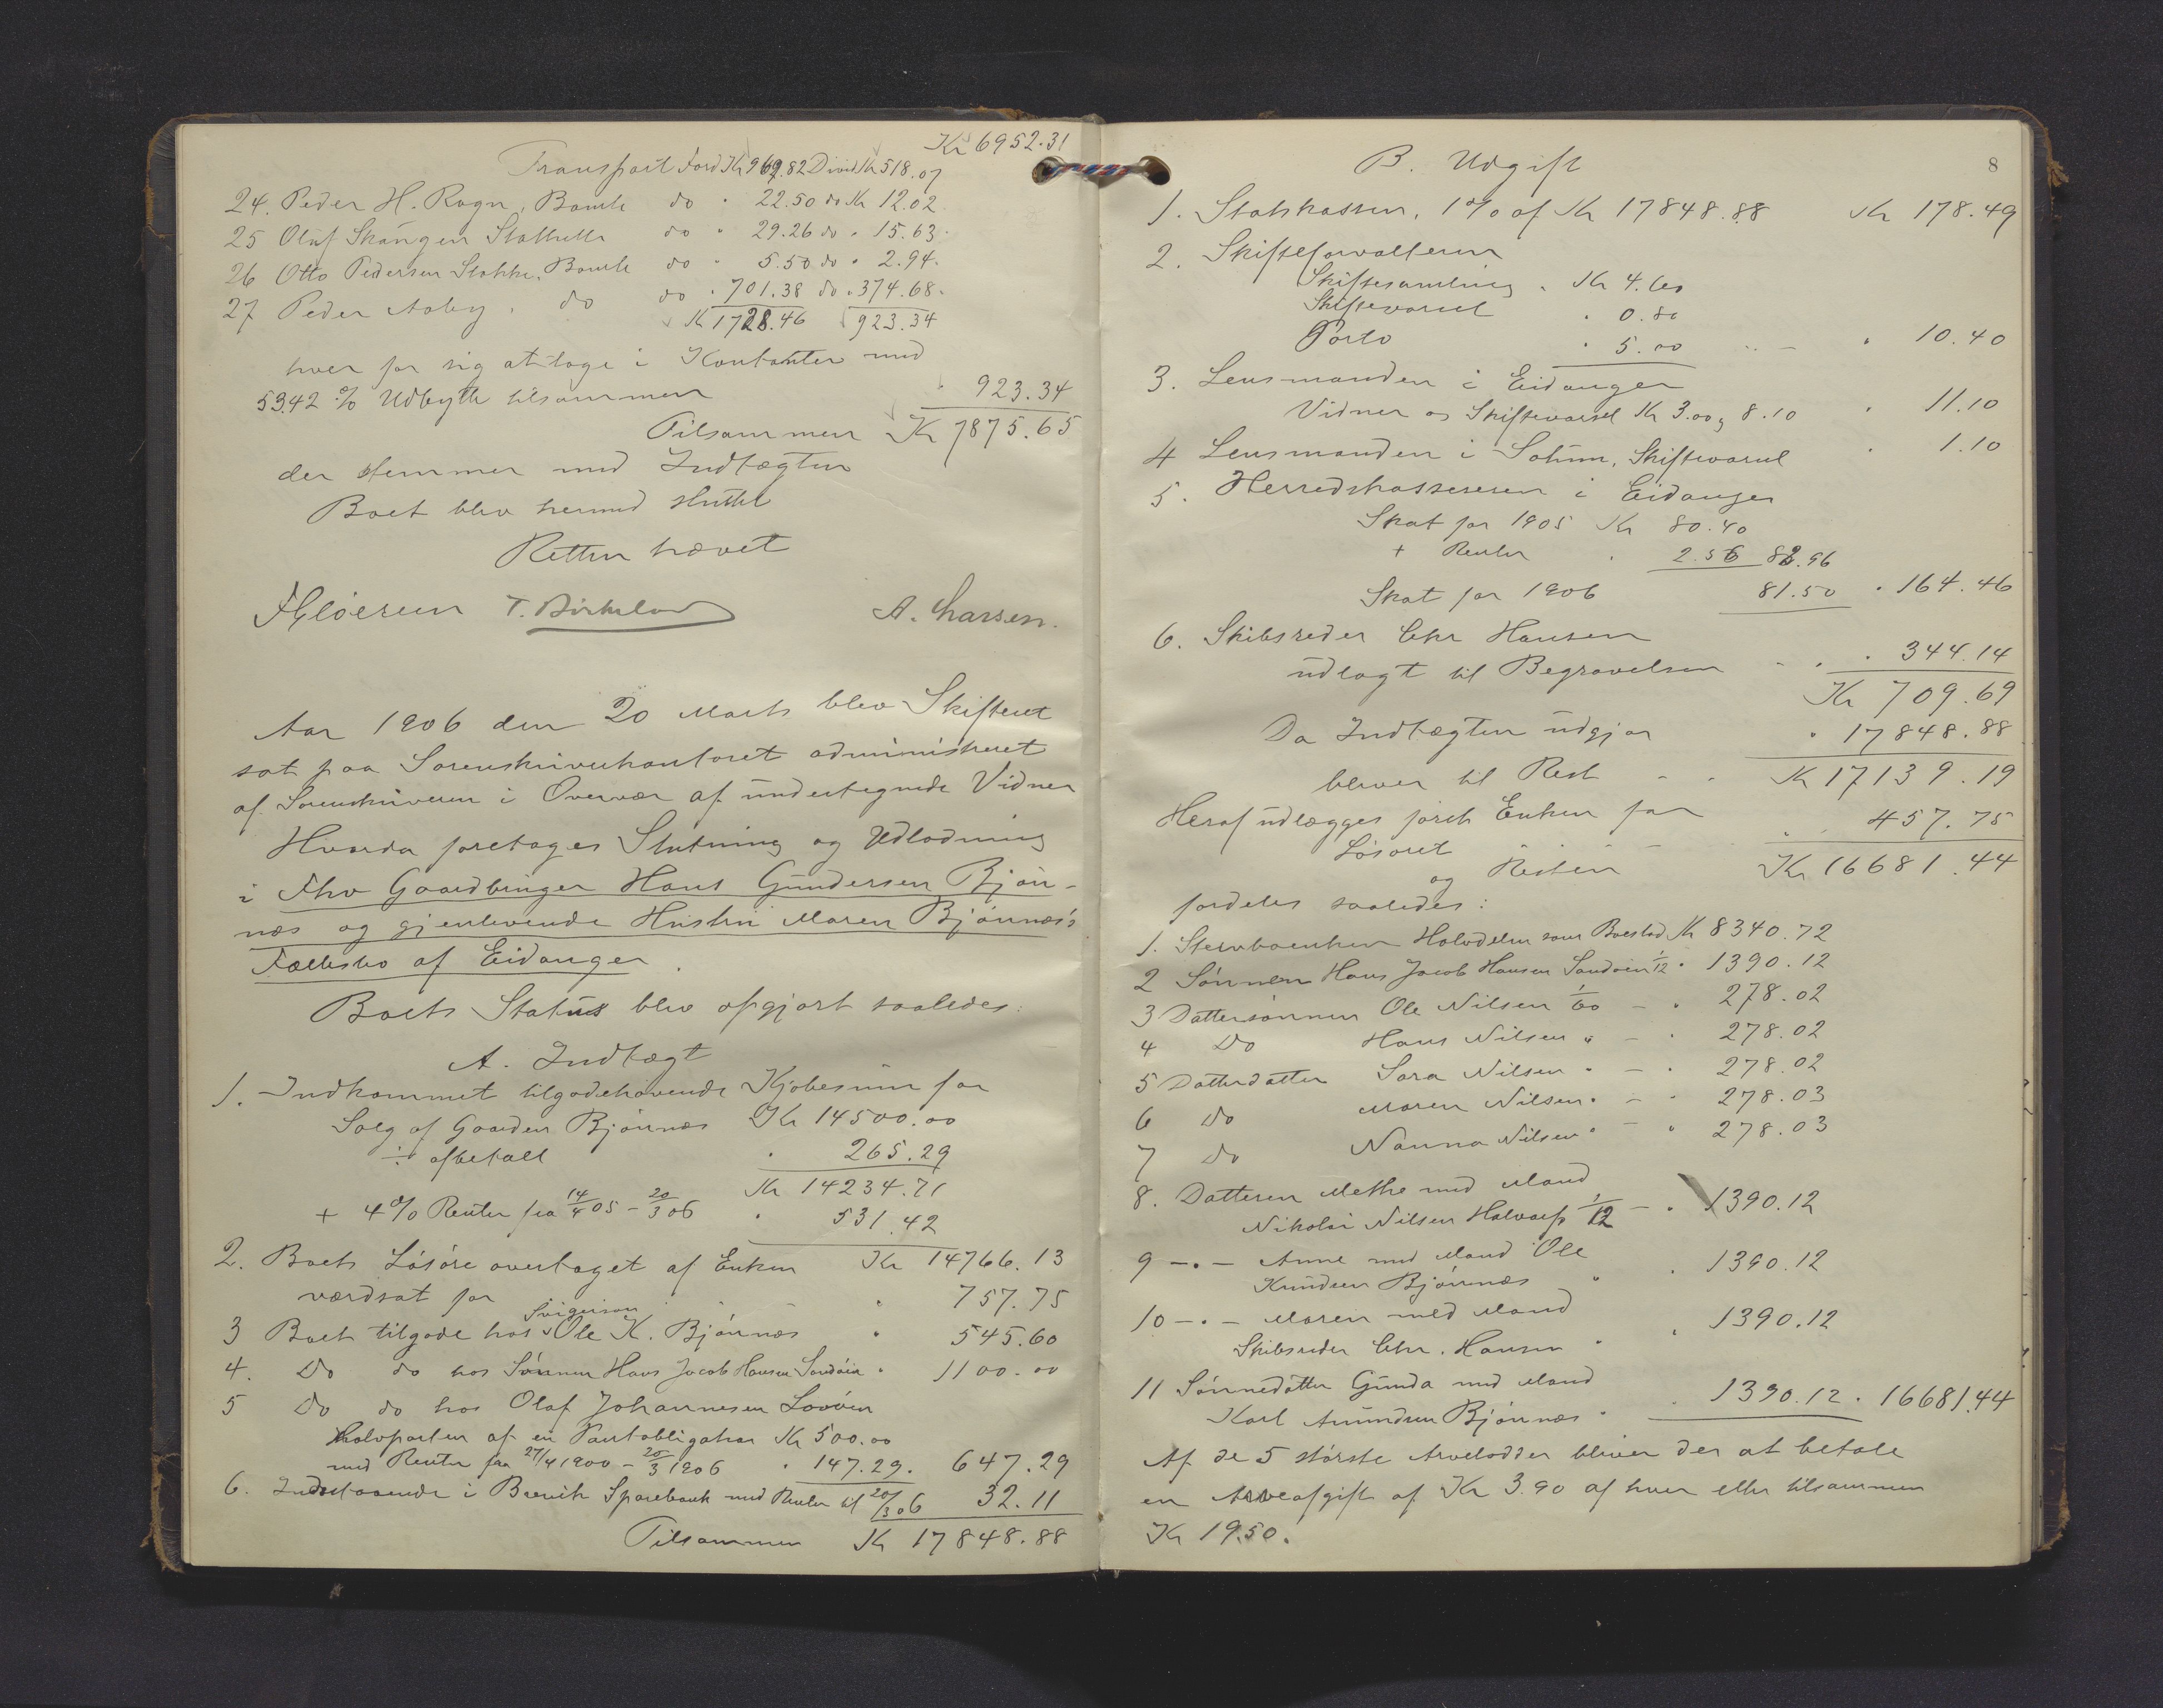 Kr 6952.31
Transport Ford Kr 969.82 Divid Kr 518.07
24. Peder H. Rogn, Bamle do " 22.50 do Kr 12.02
25 Oluf Skougen Stathelle do " 29.26 do " 15.63
26 Otto Pedersen Stokke, Bamle do " 5.50 do " 2.94
27 Peder Aaby, do do " 701.38 do " 374.68
Kr 1728.46 923.34
hver for sig at tage i Kontanter med
53.42 % Udbytte tilsammen " 923.34
Tilsammen Kr 7875.65
der stemmer med Indtægten
Boet blev hermed sluttet
Retten hævet
T. Birkeland A. Larssen.
Aar 1906 den 20 Marts blev Skifteret
sat paa Sorenskriverkontoret administreret
af Sorenskriveren i Overvær af undertegnede Vidner
Hvorda foretages Slutning og Udlodning
i Fhv Gaardbruger Hans Gundersen Bjøn-
næs og gjenlevende Hustru Maren Bjønnæs's
Fællesbo af Eidanger.
Boets Status blev opgjort saaledes:
A. Indtægt
1. Indkommet tilgodehavende Kjøbesum for
Salg af Gaarden Bjønnæs Kr 14500.00
÷ afbetalt " 265.29
Kr 14234.71
+ 4 % Renter fra 14/4 05 - 20/3 06 " 531.42
Kr 14766.13
2. Boets Løsøre overtaget af Enken
værdsat for " 757.75
3 Boet tilgode hos Svigersøn Ole K. Bjønnæs " 545.60
4. Do do hos Sønnen Hans Jacob Hansen Sandøen " 1100.00
5 Do do hos Olaf Johannesen Lovøen
Halvparten af en Pantobligation Kr 500.00
med Renter fra 27/4 1900 - 20/3 1906 " 147.29. 647.29
6. Indestaaende i Brevik Sparebank med Renter til 20/3 06 32.11
Tilsammen Kr 17848.88
8
B. Udgift
1. Statskassen, 1 % af Kr 17848.88 Kr 178.49
2. Skifteforvalteren
Skiftesamling " Kr 4.60
Skiftevarsel " 0.80
Porto " 5.00 - " 10.40
3. Lensmanden i Eidanger
Vidner og Skiftevarsel Kr 3.00 og 8.10 " 11.10
4 Lensmanden i Solum, Skiftevarsel " 1.10
5. Herredskassereren i Eidanger
Skat for 1905 Kr 80.40
+ Renter " 2.56 82.96
Skat for 1906 81.50 " 164.46
6. Skibsreder Chr Hansen
udlagt til Begravelsen - " " 344.14
Kr 709.69
Da Indtægten udgjør " 17848.88
bliver til Rest - - Kr 17139.19
Heraf udlægges forsk Enken for
Løsøret " 457.75
og Resten - Kr 16681.44
fordeles saaledes:
1. Stervboenken Halvdelen som Boeslod Kr 8340.72
2 Sønnen Hans Jacob Hansen Sandøen 1/12 " 1390.12
3 Dattersønnen Ole Nilsen 1/60 - " 278.02
4 Do Hans Nilsen " - " 278.02
5 Datterdatter Sara Nilsen " - " 278.02
6 Do Maren Nilsen " - " 278.03
7 Do Nanna Nilsen " - " 278.03
8. Datteren Methe med Mand
Nikolai Nilsen Halvarp 1/12 - " 1390.12
9 -"- Anne med Mand Ole
Knudsen Bjønnæs " " 1390.12
10 -"- Maren med Mand
Skibsreder Chr. Hansen " " 1390.12
11 Sønnedatter Gunda med Mand
Karl Amundsen Bjønnæs " " 1390.12 " 16681.44
Af de 5 største Arvelodder bliver der at betale
en Arveafgift af Kr 3.90 af hver eller tilsammen
Kr 19.50.